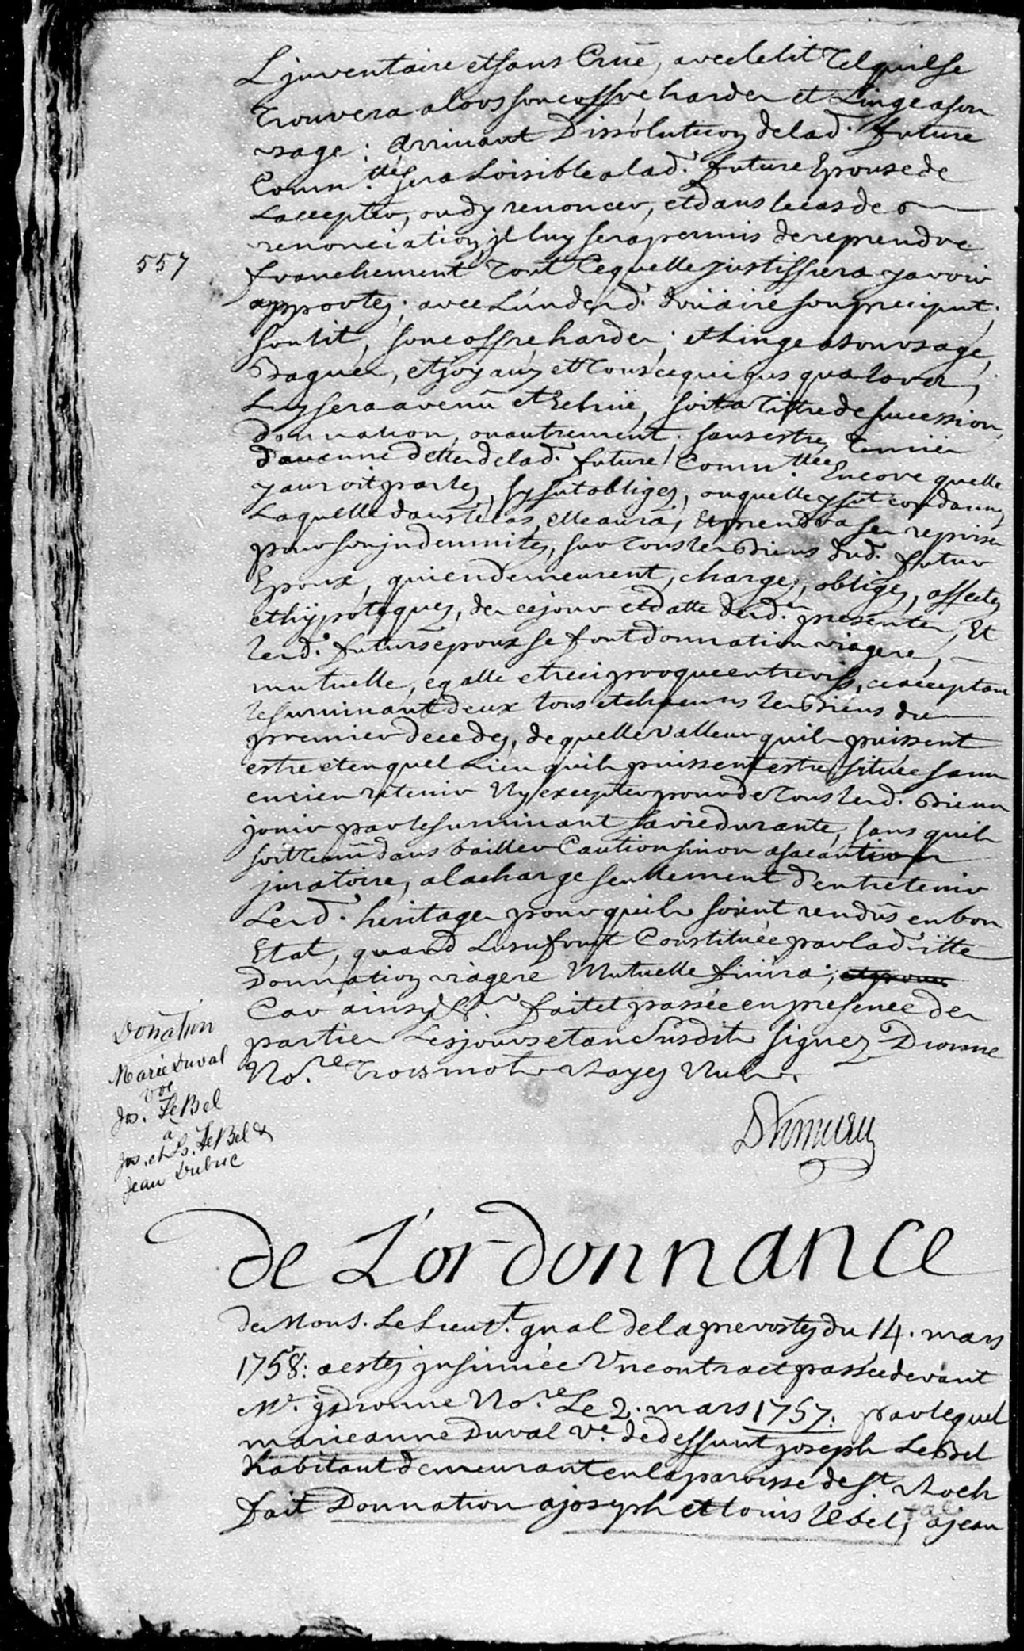 L'juventaire et sans Crüe, avec le lit Tel quil se
trouvera alors son coffre hardes et Linge a son
usage : Arrivant Dissolution de lad. future
Comm.té sera Loisible a lad. future Epouse de
Laccepter, ou dy renoncer, et dans le cas de
renonciation, jl luy sera permis de reprendre
franchement Tout Ce quelle justiffiera y avoir
557
apporté, avec L'un desd. doüaire son preciput,
son lit, son coffre, hardes, et Linge a son usage,
Bagues, et joyaux et Tous ce qui
Luy sera avenü et Echüe, soit a Tittre de succession,
donnation, ou autrement, sans estre Tenüe
d'aucunne dettes de lad. future Comm.té Encore quelle
y auroit parlé, sy fut obligée, ou quelle y fut condamnée
Laquelle dans le cas, elle aura, Et prendra ses reprises
pour son jndemnité, sur tous les Biens dud. futur
Epoux, qui en demeurent, chargés, obligés, affectés
et hypotequés, de ce jour et datte desd. presentes, Et
lesd. futurs epoux se font donnation viagere,
mutuelle, egalle et reciproque entre vifs, ce acceptant
le survivant deux tous et chacuns les Biens du
premier decedé, de quelle valleur quils puissent
estre et en quel Lieu quils puissent estre situés sans
en rien retenir Ny excepter pour de tous lesd. Biens
jouir par le survivant sa vie durante, sans quil
soit tenü dans bailler Caution sinon a sa caution
juratoire, a la charge seullement d'entretenir
Lesd. heritages pour quils soient rendüs en bon
Etat, quand Lusufruit Constituée par lad.itte
Donnation viagere Mutuelle finira;
Car ainsy &.a fait et passée en presence des
parties Les jours et an susdits signez Dionne
No.re Trois mots Rayés Nuls.
Donation
Marie Duval
vve
Jos. LeBel
a
Jos. et Ls. LeBel &
Jean Dubuc
de L'ordonnance
de Mons. Le Lieut.t gnal de la prevosté du 14. mars
1758: a esté jnsinüée Un contract passée devant
M.e Dionne No.re Le 2. mars 1757. par lequel
marie anne Duval V.e de deffunt joseph LeBel
habitant demeurant en la paroisse de S.t Roch
fait Donnation a joseph et louis lebel, a jean